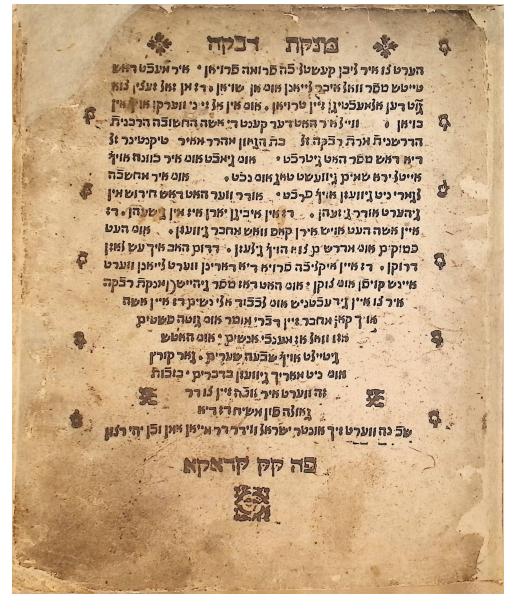 מנקת רבקה
הערט צו איר ליבן קעשטליכה פרומה פרויאן · איר מעכט דאש
טייטש ספר וואל איבר לייאנן אום אן שויאן · דז מן זאל זעצין זוא
גוט דען אלמעכטיגן זיין טרויאן · אום אין אל זייני ווערקן אויף אין
בויאן · ווייל איר האט דער קענט די אשה החשובה הרבנית
הדרשנית מרת רבקה ז"ל בת הגאון מהרר מאיר טיקטינער ז"ל
דיא דאש ספר האט גיטרכט · אום גימאכט אום איר כוונה אויף
אייטל יראת שמים גיוועשט טאג אום נכט · אום איר מחשבה
לגמרי ניט גיוועזן אויף פרכט · אודר ווער האט דאש חידוש מין
גיהערט אודר גיזעהן · דז אין אייביגן יארן איז אין גישעהן · דז
איין אשה העט אויש אירן קאפ וואש מחבר גיוועזן · אום העט
פסוקים אום מדרשים צו הויף גילעזן · דרום האב איך עש לאזן
דרוקן · דז איין איקליכה פרויא דיא דארינן ווערט לייאנן ווערט
איינש קויפן אום צוקן · אום האט דאז ספר גיהיישן מנקת רבקה
איר צו איין גידעכטניש אום לכבוד אלי נשים דז איין אשה
אויך קאן מחבר זיין דברי מוסר אום גוטה פשטים
אזו וואל אז מענכי אנשים · אום האטש
גיטיילט אויף שבעה שערים · גאר קורץ
אום ניט מאריך גיוועזן בדברים · בזכות
זה ווערט איר זוכה זיין צו דר
גאולה פון משיח דז דיא
שכינה ווערט זיך אונטר ישראל ווידר דר מייאן אמן וכן יהי רצון
פה קק קראקא